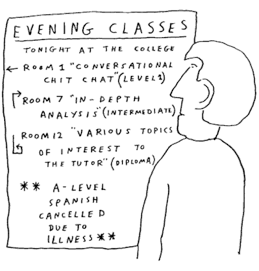 EVENING CLASSES
TONIGHT AT THE COLLEGE
← ROOM 1 "CONVERSATIONAL
CHIT CHAT" (LEVEL 1)
ROOM 7 "IN-DEPTH
ANALYSIS" (INTERMEDIATE)
ROOM 12 "VARIOUS TOPICS
OF INTEREST TO
THE TUTOR" (DIPLOMA)
** A-LEVEL
SPANISH
CANCELLED
DUE TO
ILLNESS **